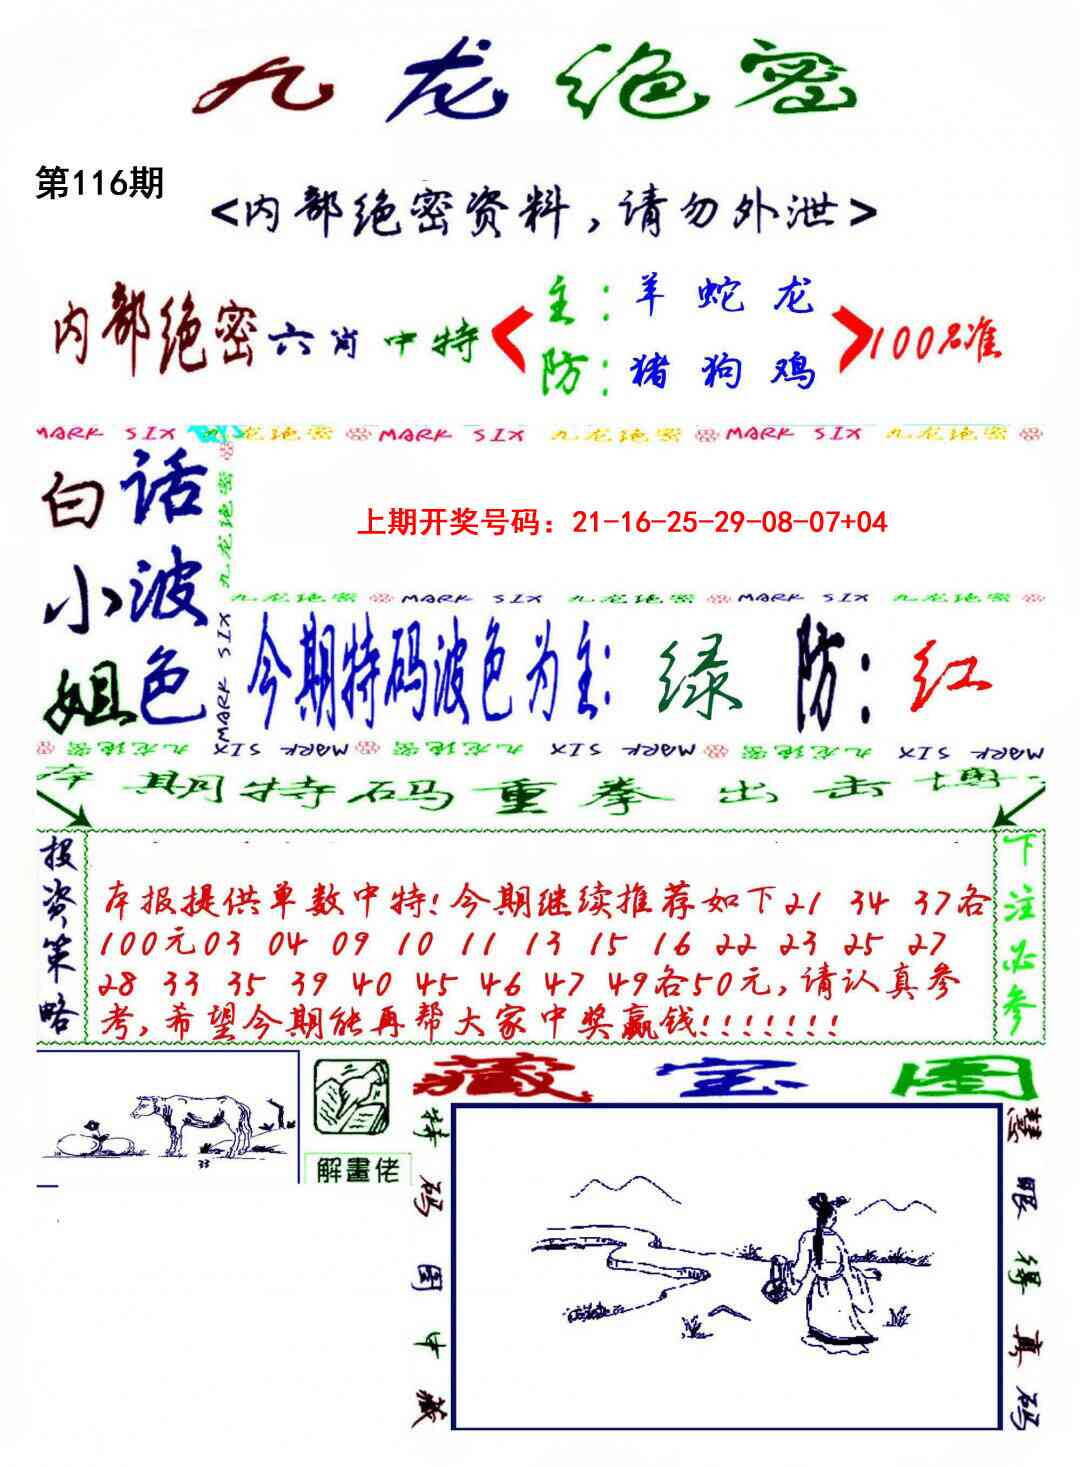 九龙绝密
第116期
<内部绝密资料，请勿外泄>
内部绝密六肖中特
主：羊 蛇 龙
防：猪 狗 鸡
100%准
MARK SIX 九龙绝密 MARK SIX 九龙绝密 MARK SIX 九龙绝密
白小姐
话波色
九龙绝密 MARK SIX
上期开奖号码：21-16-25-29-08-07+04
九龙绝密 MARK SIX 九龙绝密 MARK SIX 九龙绝密
今期特码波色为主：绿 防：红
九龙绝密 MARK SIX MARK SIX 九龙绝密 MARK SIX MARK SIX 九龙绝密 MARK SIX
本期特码重拳出击博
投资策略
本报提供单数中特!今期继续推荐如下21 34 37各
100元03 04 09 10 11 13 15 16 22 23 25 27
28 33 35 39 40 45 46 47 49各50元,请认真参
考,希望今期能再帮大家中奖赢钱!!!!!!!
下注必参
33
解畫佬
藏宝图
特码图中藏
慧眼得真码